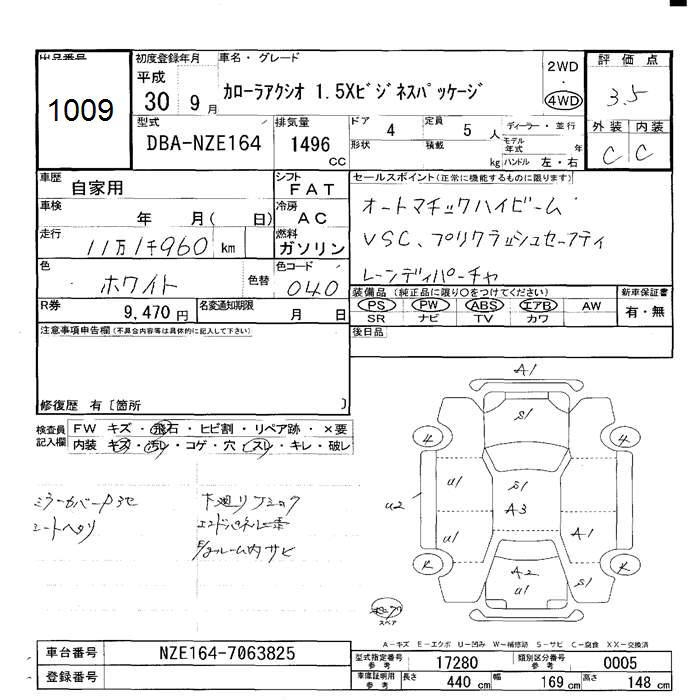 出品番号
1009
初度登録年月
平成
30 9 月
車名・グレード
カローラアクシオ 1.5Xビジネスパッケージ
2WD
・
4WD
評価点
3.5
型式
DBA-NZE164
排気量
1496
cc
ドア 4
定員 5 人
形状
積載 kg
ディーラー・並行
モデル年式 年
ハンドル 左・右
外装 内装
C C
車歴
自家用
シフト
FAT
車検
年 月( 日)
冷房
AC
走行
11万1千960 km
燃料
ガソリン
色
ホワイト
色替
色コード
040
R券
9,470 円
名変通知期限
月 日
セールスポイント(正常に機能するものに限ります)
オートマチックハイビーム
VSC、プリクラッシュセーフティ
レーンディパーチャ
装備品(純正品に限り〇をつけてください)
PS PW ABS エアB AW
SR ナビ TV カワ
新車保証書
有・無
注意事項申告欄(不具合内容等は具体的に記入して下さい)
後日品
修復歴 有〔箇所 〕
検査員
記入欄
FW キズ・飛石・ヒビ割・リペア跡・×要
内装 キズ・汚レ・コゲ・穴・スレ・キレ・破レ
ミラーカバー
シートヘタリ
下廻リ
エンドパネル
ルーム内サビ
A1
S1
4 4
U1 S1
U2 A3
U1 A1
R R
A2 S1
U1
スペア
A-キズ E-エクボ U-凹み W-補修跡 S-サビ C-腐食 XX-交換済
車台番号
NZE164-7063825
登録番号
型式指定番号
参考
17280
類別区分番号
参考
0005
車庫証明用
参考
長さ 440 cm
幅 169 cm
高さ 148 cm